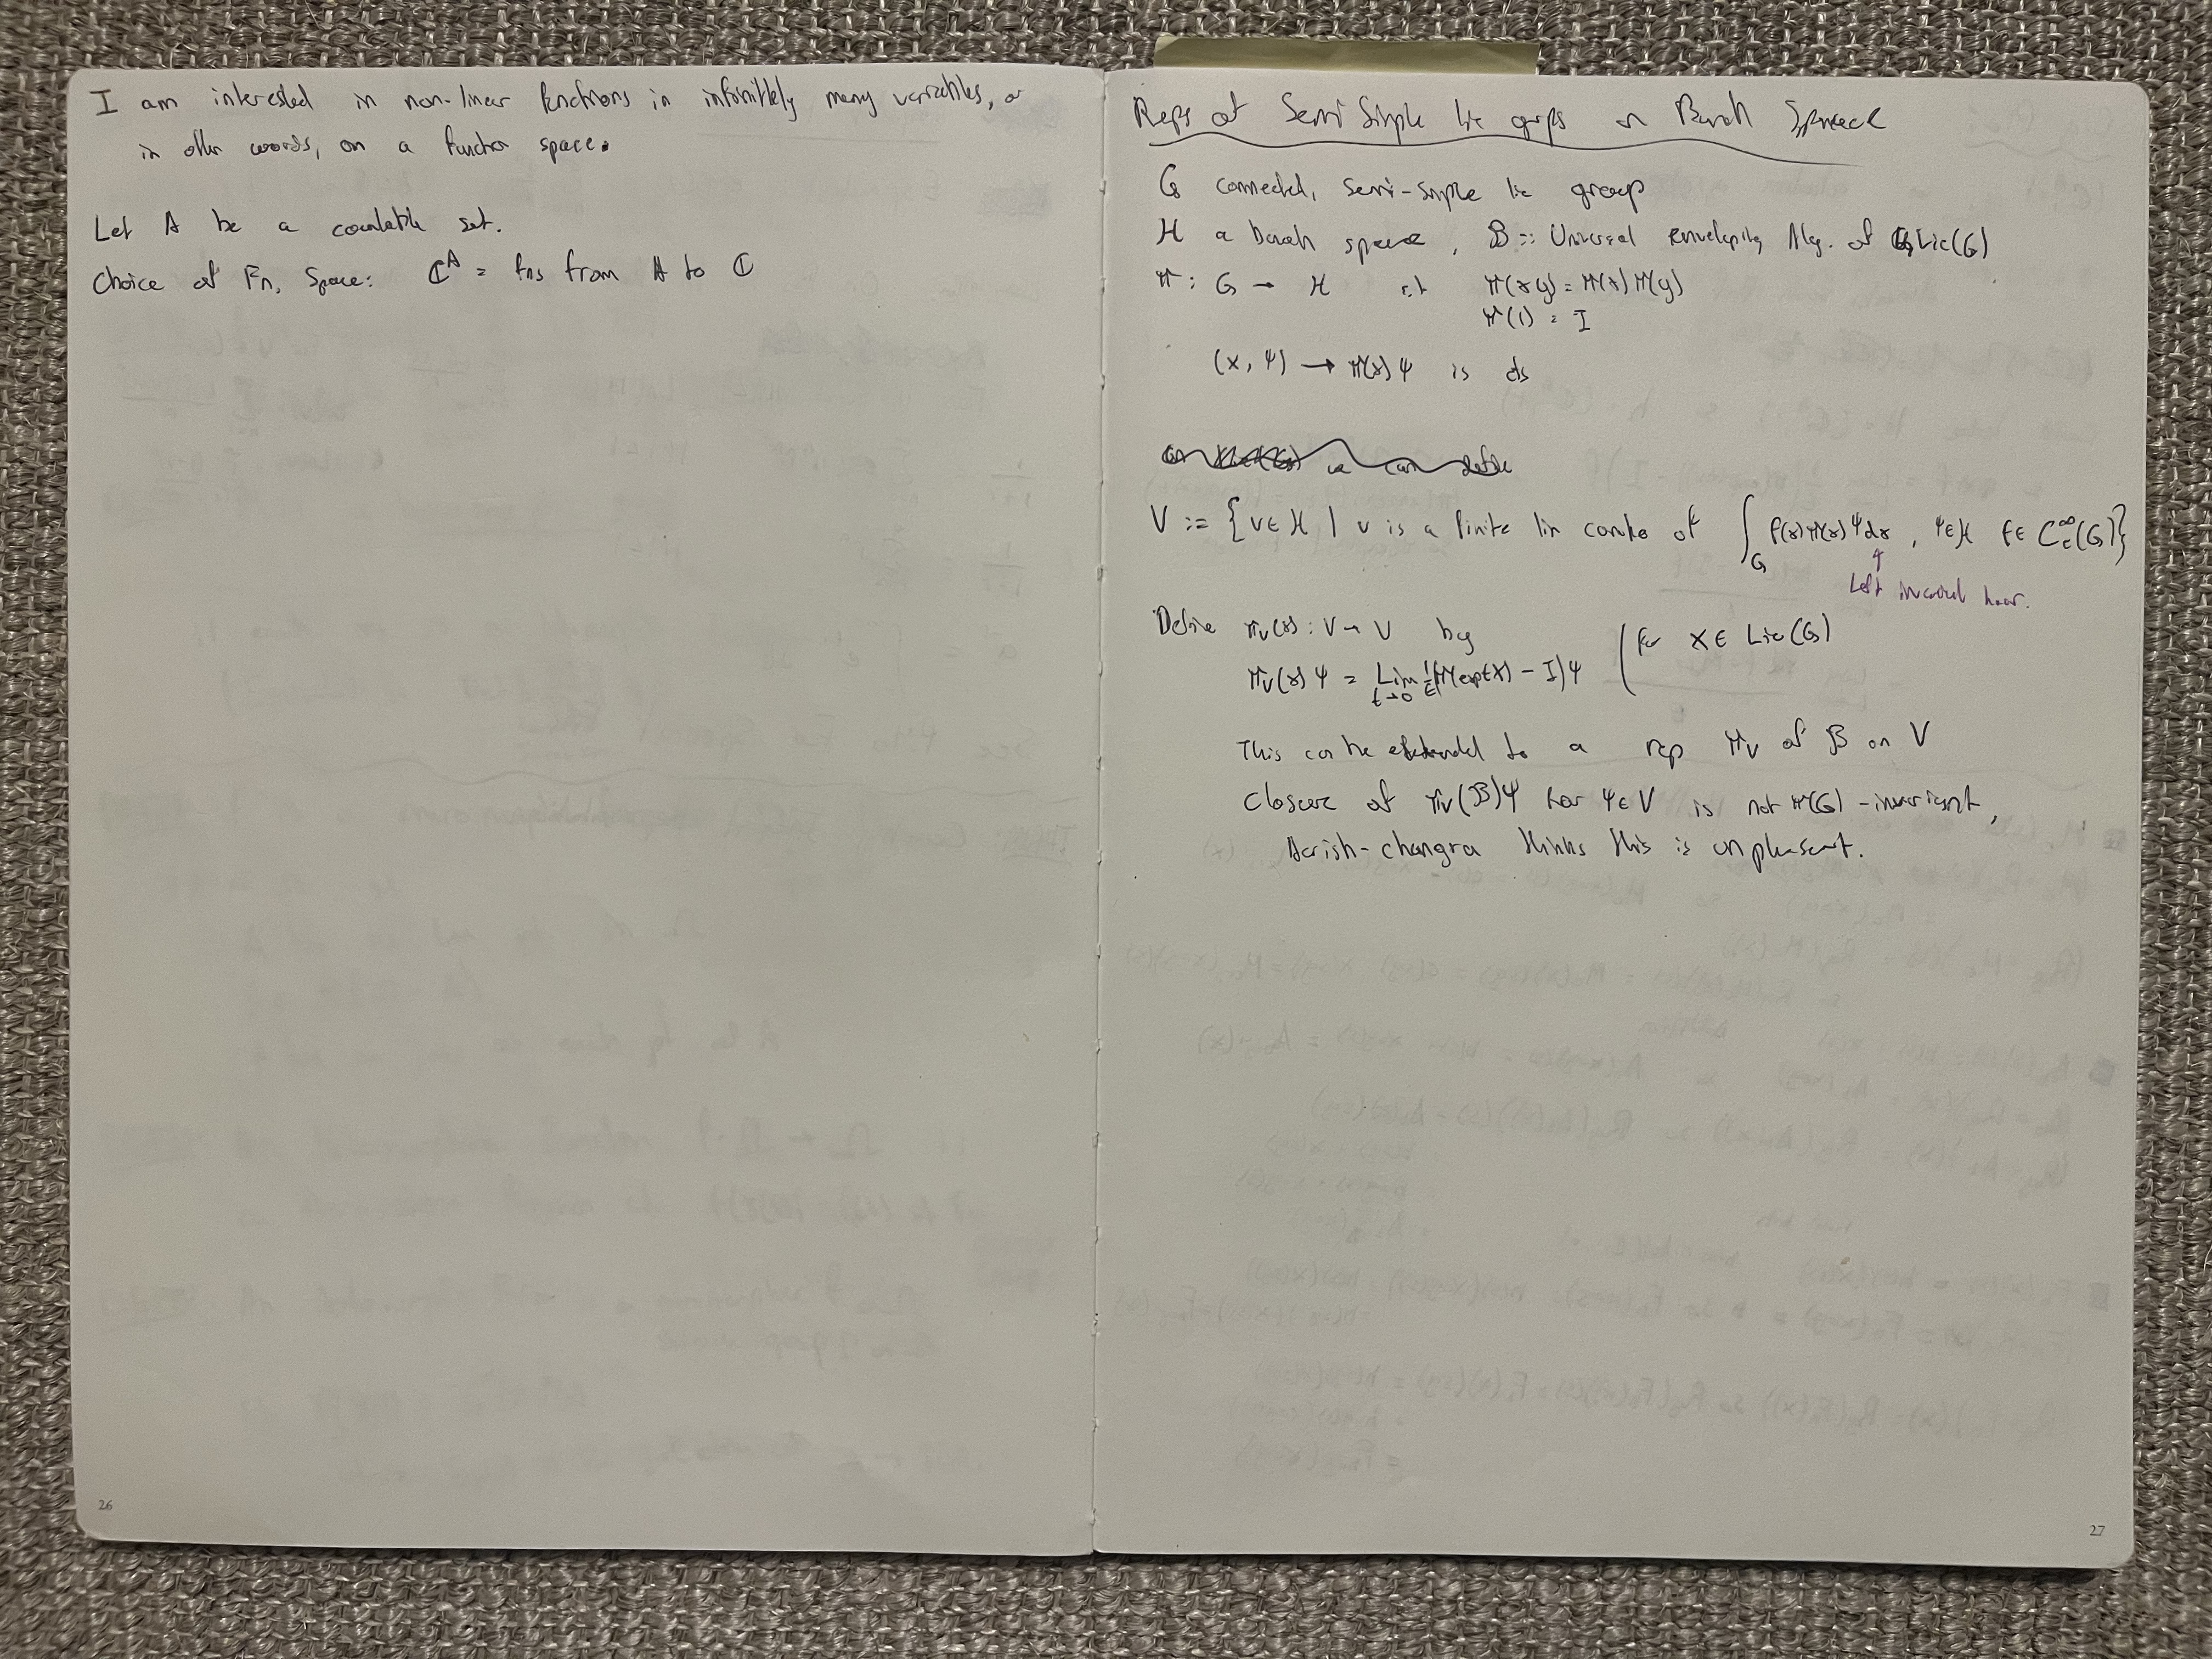 I am interested in non-linear functions in infinitely many variables, or
in other words, on a function space.
Let A be a countable set.
Choice of Fn. Space: ℂ^A = fns from A to ℂ
26
Reps of Semi Simple lie grps on Banach Spaces
G connected, semi-simple lie group
H a banach space, B := Universal enveloping Alg. of Lie(G)
π : G → H s.t. π(xy) = π(x)π(y)
π(1) = I
(x, ψ) → π(x)ψ is cts
V := { v ∈ H | v is a finite lin combo of ∫_G f(x)π(x)ψ dx, ψ∈H f∈ C_c^∞(G)}
Left invariant haar.
Define π_V(X) : V → V by
π_V(X)ψ = Lim_{t→0} 1/t (π(exp tX) - I)ψ (for X ∈ Lie(G))
This can be extended to a rep π_V of B on V
Closure of π_V(B)ψ for ψ∈V is not π(G)-invariant,
Harish-changra thinks this is unpleasant.
27